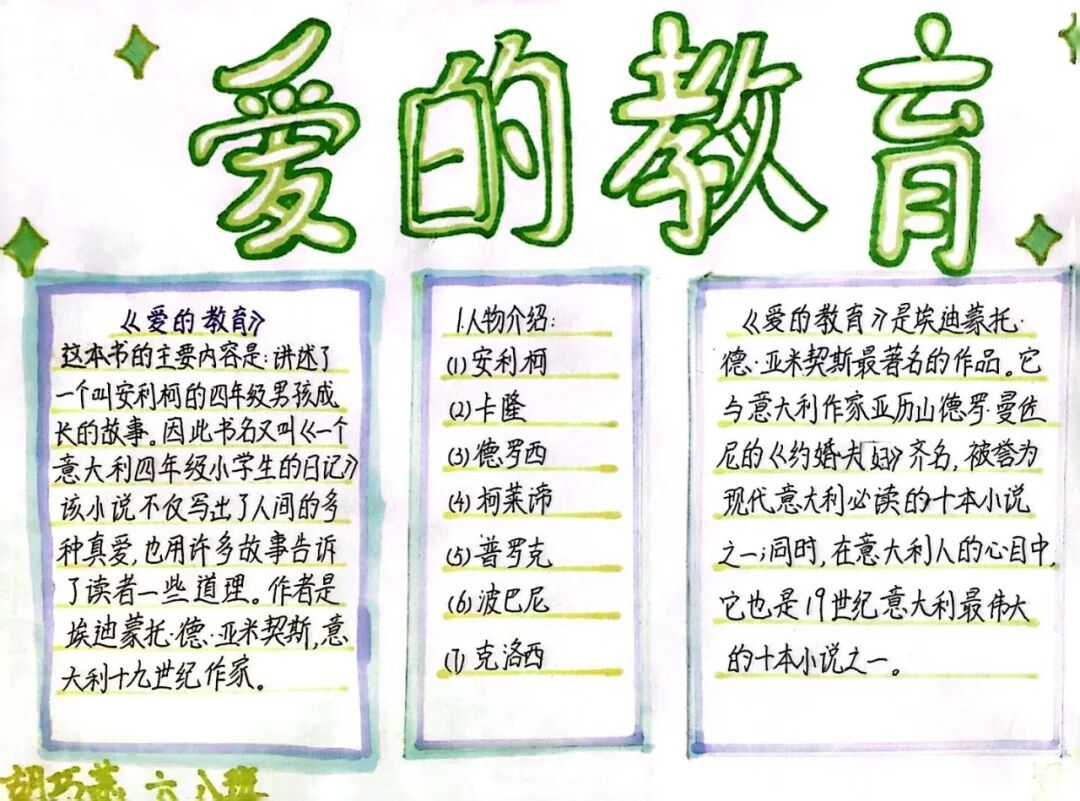 爱的教育
《爱的教育》
这本书的主要内容是:讲述了
一个叫安利柯的四年级男孩成
长的故事。因此书名又叫《一个
意大利四年级小学生的日记》
该小说不仅写出了人间的多
种真爱,也用许多故事告诉
了读者一些道理。作者是
埃迪蒙托·德·亚米契斯,意
大利十九世纪作家。
1.人物介绍:
(1)安利柯
(2)卡隆
(3)德罗西
(4)柯莱谛
(5)普罗克
(6)波巴尼
(7)克洛西
《爱的教育》是埃迪蒙托·
德·亚米契斯最著名的作品。它
与意大利作家亚历山德罗·曼佐
尼的《约婚夫妇》齐名,被誉为
现代意大利必读的十本小说
之一;同时,在意大利人的心目中,
它也是19世纪意大利最伟大
的十本小说之一。
胡巧 六八班